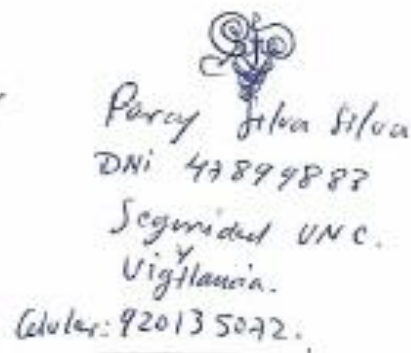 Parcy Silva Silva
DNi 47899883
Seguridad UNC.
y
Vigilancia.
Celular: 920135072.